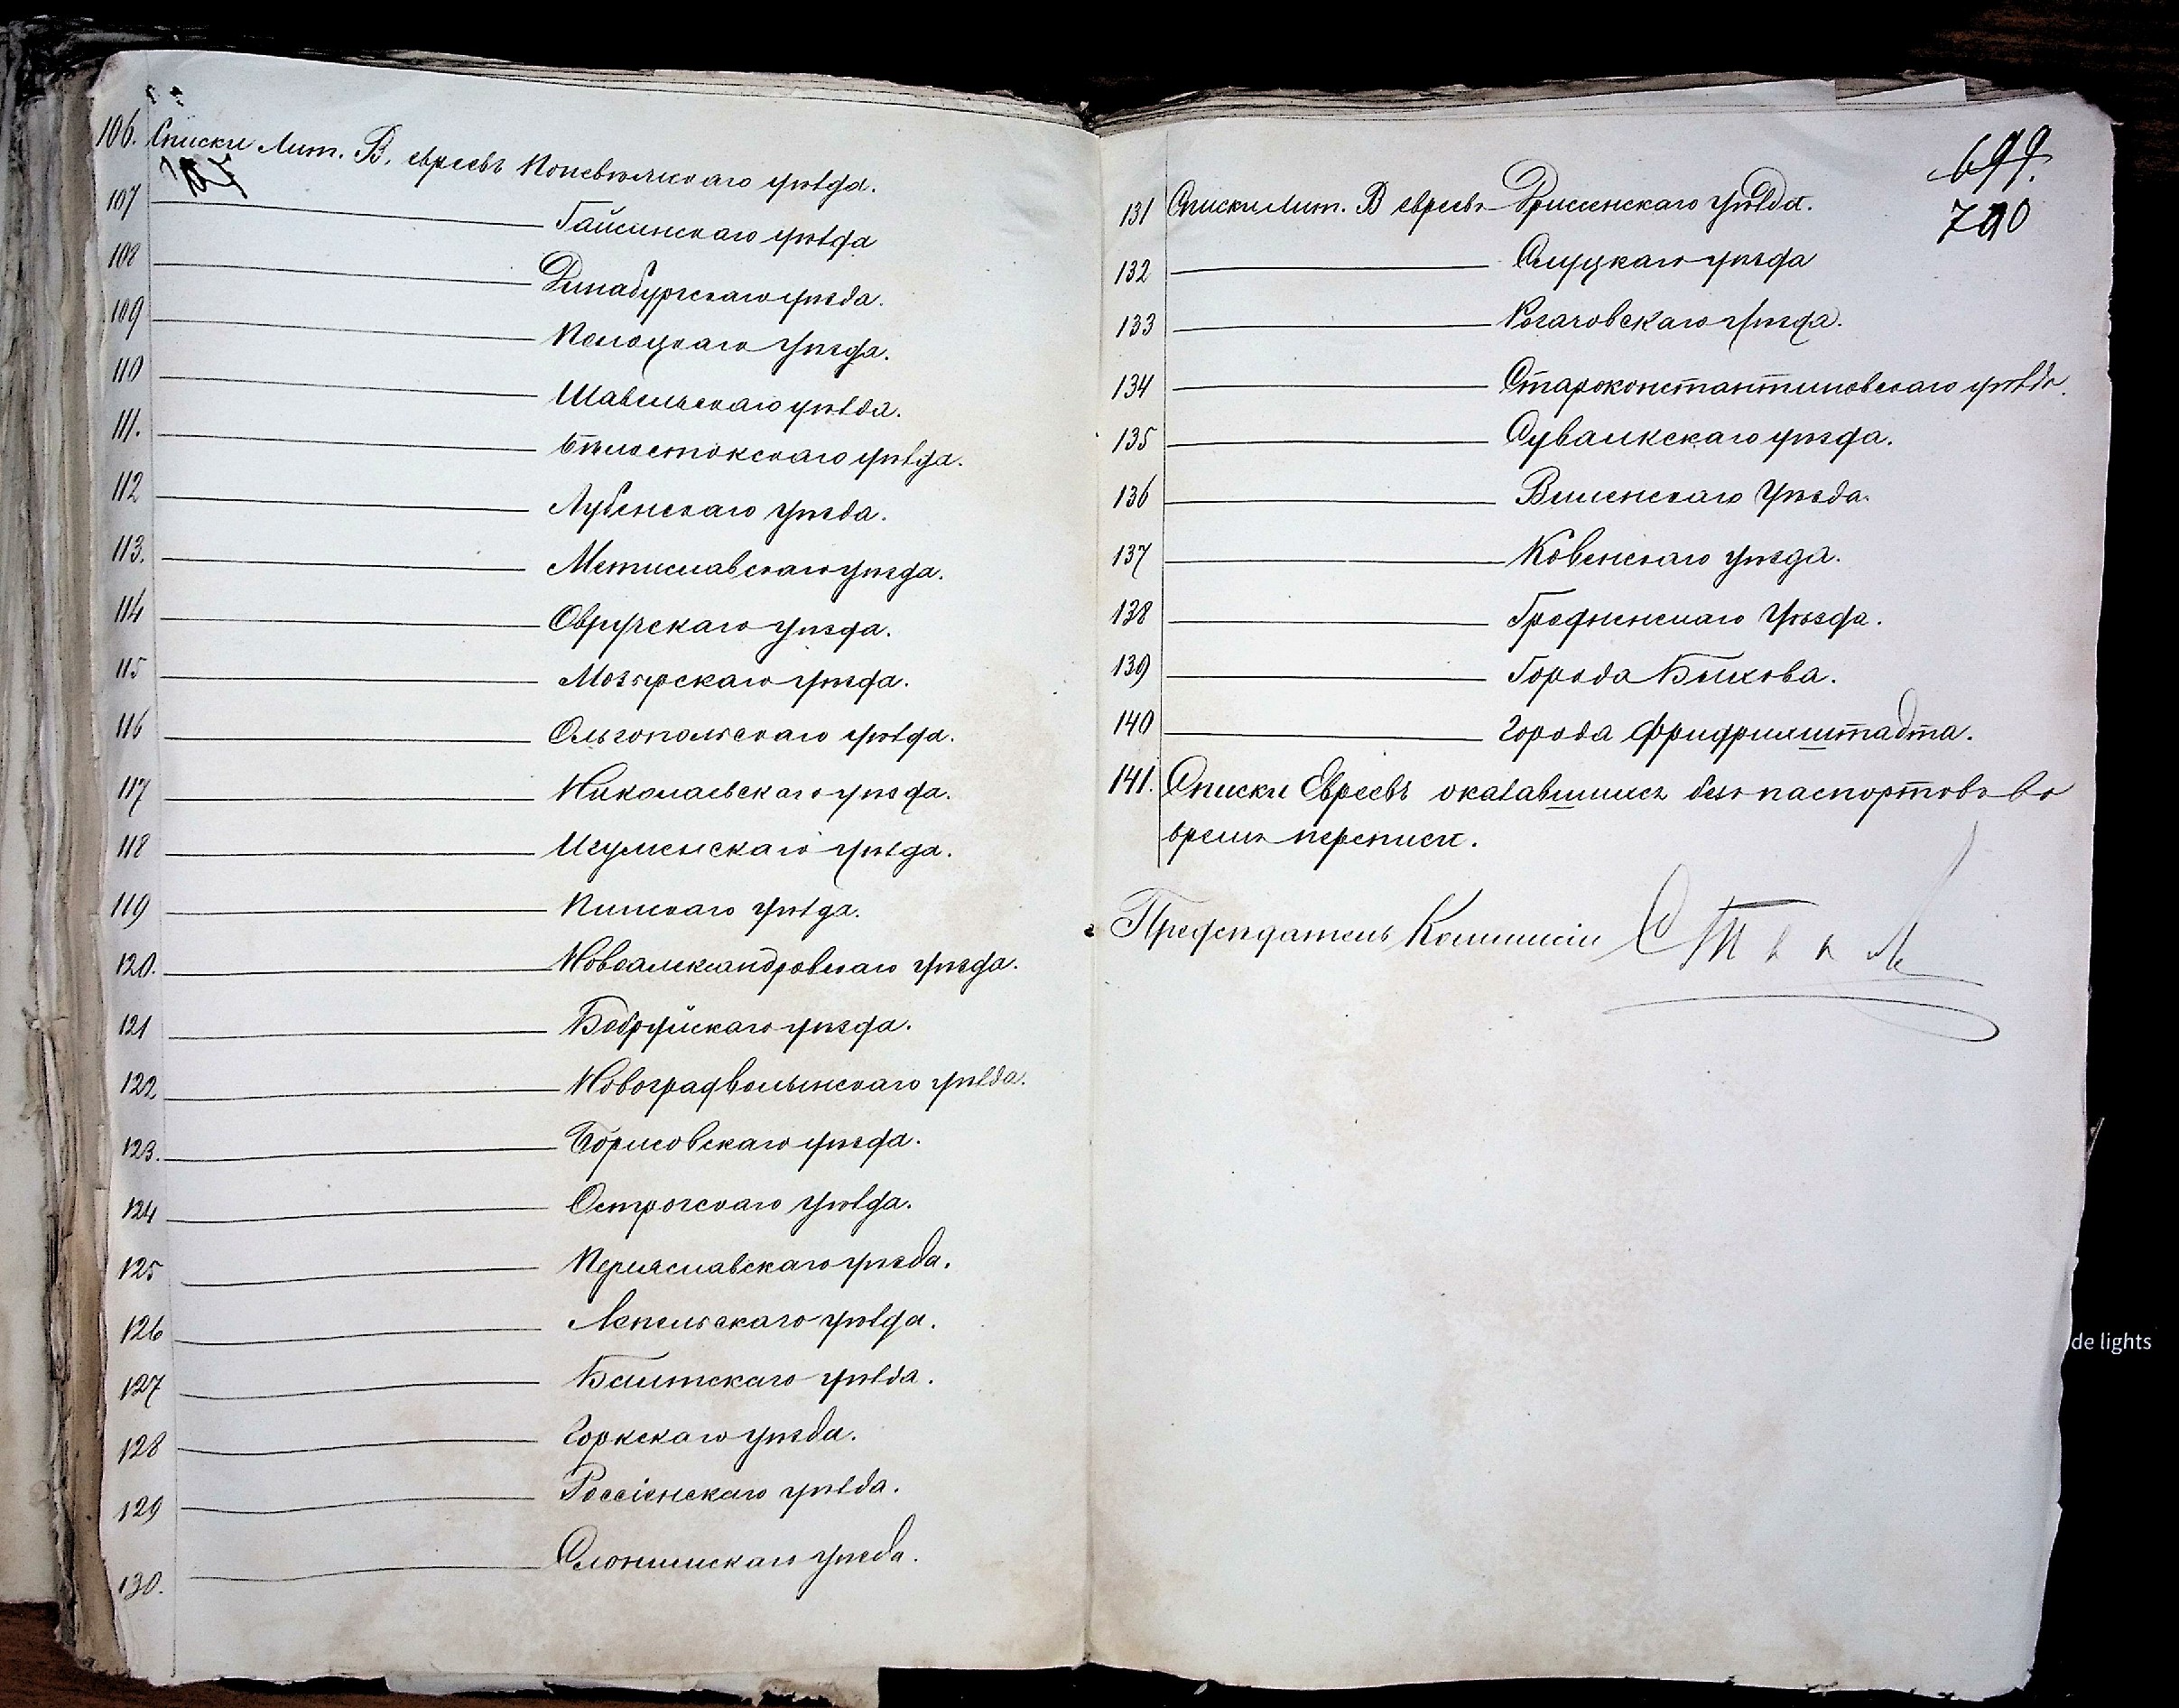 106. Списки Лит. В. евреевъ Поневѣжскаго уѣзда.
107 Гайсинскаго уѣзда
108 Динабургскаго уѣзда.
109 Полоцкаго уѣзда.
110 Шавельскаго уѣзда.
111. Бѣлостокскаго уѣзда.
112 Лубенскаго уѣзда.
113. Мстиславскаго уѣзда.
114 Овручскаго уѣзда.
115 Мозырскаго уѣзда.
116 Ольгопольскаго уѣзда.
117 Николаевскаго уѣзда.
118 Игуменскаго уѣзда.
119 Пинскаго уѣзда.
120. Новоалександровскаго уѣзда.
121 Бобруйскаго уѣзда.
122 Новоградволынскаго уѣзда.
123. Борисовскаго уѣзда.
124 Острогскаго уѣзда.
125 Переяславскаго уѣзда.
126 Лепельскаго уѣзда.
127 Балтскаго уѣзда.
128 Горкскаго уѣзда.
129 Россіенскаго уѣзда.
130. Слонимскаго уѣзда.
699.
700
131 Списки Лит. В евреевъ Дрисенскаго уѣзда.
132 Слуцкаго уѣзда
133 Рогачовскаго уѣзда.
134 Староконстантиновскаго уѣзда.
135 Сувалкскаго уѣзда.
136 Виленскаго уѣзда.
137 Ковенскаго уѣзда.
138 Гродненскаго уѣзда.
139 Города Быхова.
140 города Фридрихштадта.
141. Списки Евреевъ оказавшихся безъ паспортовъ во
время переписи.
Предсѣдатель Коммисіи
de lights